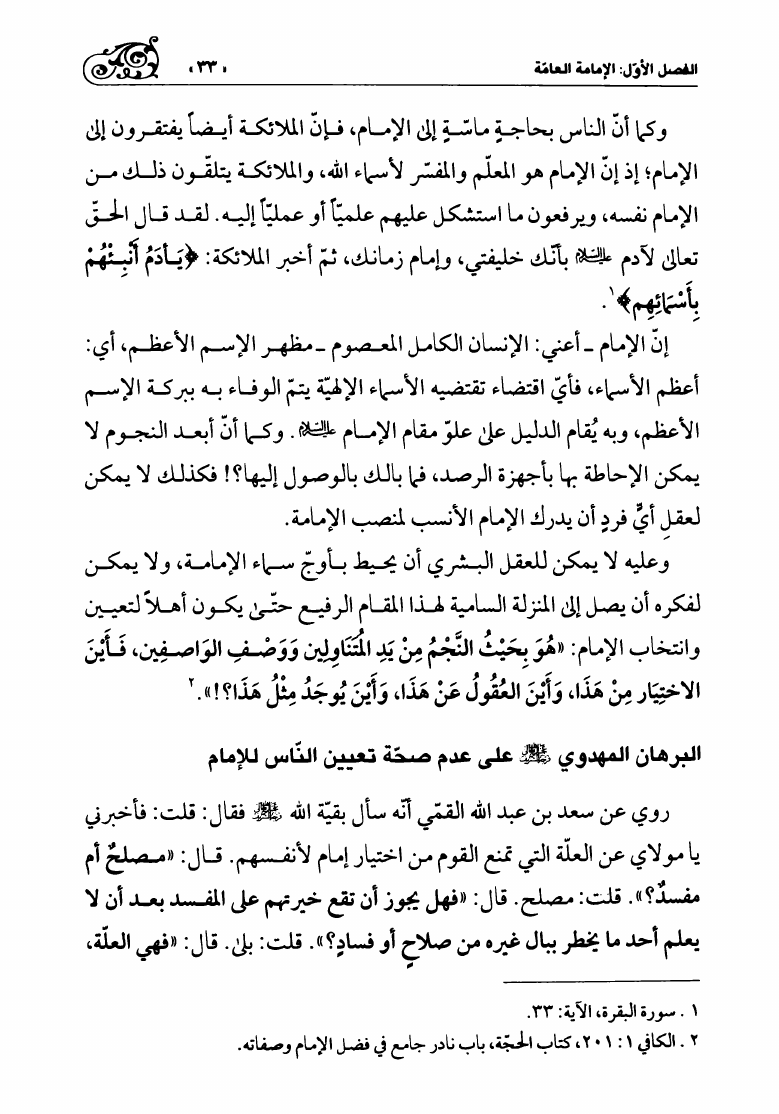 الفصل الأوّل: الإمامة العامّة
﴿٣٣﴾
وكما أنّ الناس بحاجةٍ ماسّةٍ إلى الإمـام، فـإنّ الملائكـة أيـضاً يفتقـرون إلى
الإمام؛ إذ إنّ الإمام هو المعلّم والمفسّر لأسماء الله، والملائكـة يتلقّـون ذلـك مـن
الإمام نفسه، ويرفعون ما استشكل عليهم علميّاً أو عمليّاً إليـه. لقـد قـال الحـقّ
تعالى لآدم عليه السلام بأنّك خليفتي، وإمام زمانك، ثمّ أخبر الملائكة: ﴿يَـأدَمُ أَنْبِـئْهُمْ
بِأَسْمَائِهِم﴾١.
إنّ الإمام ـ أعني: الإنسان الكامل المعـصوم ـ مظهـر الإسـم الأعظـم، أي:
أعظم الأسماء، فأيّ اقتضاء تقتضيه الأسماء الإلهيّة يتمّ الوفـاء بـه ببركـة الإسـم
الأعظم، وبه يُقام الدليل على علوّ مقام الإمـام عليه السلام. وكـما أنّ أبعـد النجـوم لا
يمكن الإحاطة بها بأجهزة الرصد، فما بالك بالوصول إليها؟! فكذلك لا يمكن
لعقلِ أيِّ فردٍ أن يدرك الإمام الأنسب لمنصب الإمامة.
وعليه لا يمكن للعقل البـشري أن يحـيط بـأوجّ سـماء الإمامـة، ولا يمكـن
لفكره أن يصل إلى المنزلة السامية لهـذا المقـام الرفيـع حتّـى يكـون أهـلاً لتعيـين
وانتخاب الإمام: «هُوَ بِحَيْثُ النَّجْمُ مِنْ يَدِ المُتَنَاوِلِين وَوَصْـفِ الوَاصـفِين، فَـأَيْنَ
الاختِيَار مِنْ هَذَا، وَأَيْنَ العُقُولُ عَنْ هَذَا، وَأَيْنَ يُوجَدُ مِثْلُ هَذَا؟!».٢
البرهان المهدوي على عدم صحّة تعيين النّاس للإمام
روي عن سعد بن عبد الله القمّي أنّه سأل بقيّة الله فقال: قلت: فأخبرني
يا مولاي عن العلّة التي تمنع القوم من اختيار إمام لأنفـسهم. قـال: «مـصلحٌ أم
مفسدٌ؟». قلت: مصلح. قال: «فهل يجوز أن تقع خيرتهم على المفـسد بعـد أن لا
يعلم أحد ما يخطر ببال غيره من صلاحٍ أو فسادٍ؟». قلت: بلى. قال: «فهي العلّة،
١ . سورة البقرة، الآية: ٣٣.
٢ . الكافي ١: ٢٠١، كتاب الحجّة، باب نادر جامع في فضل الإمام وصفاته.